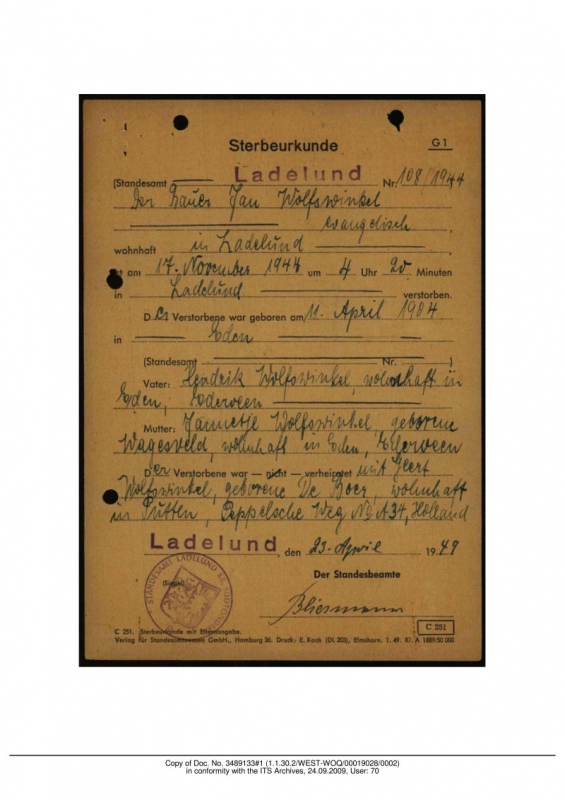 Sterbeurkunde
G 1
(Standesamt Ladelund Nr. 108/1944
Der Bauer Jan Wolfswinkel
evangelisch,
wohnhaft in Ladelund
ist am 17. November 1944 um 4 Uhr 20 Minuten
in Ladelund verstorben.
D er Verstorbene war geboren am 11. April 1904
in Eden
(Standesamt Nr. )
Vater: Hendrik Wolfswinkel, wohnhaft in
Eden, Ederveen
Mutter: Jannetje Wolfswinkel, geborene
Wagesveld, wohnhaft in Eden, Ederveen
Der Verstorbene war — nicht — verheiratet mit Geert
Wolfswinkel, geborene De Boer, wohnhaft
in Putten, Peppelsche Weg No A 34, Holland
Ladelund, den 23. April 1949
Der Standesbeamte
(Siegel)
STANDESAMT LADELUND KR. SÜDTONDERN
C 251
C 251. Sterbeurkunde mit Elternangabe.
Verlag für Standesamtswesen GmbH., Hamburg 36. Druck: E. Koch (DL 203), Elmshorn. 1. 49. Kl. A 1889/50 000
Copy of Doc. No. 3489133#1 (1.1.30.2/WEST-WOQ/00019028/0002)
in conformity with the ITS Archives, 24.09.2009, User: 70